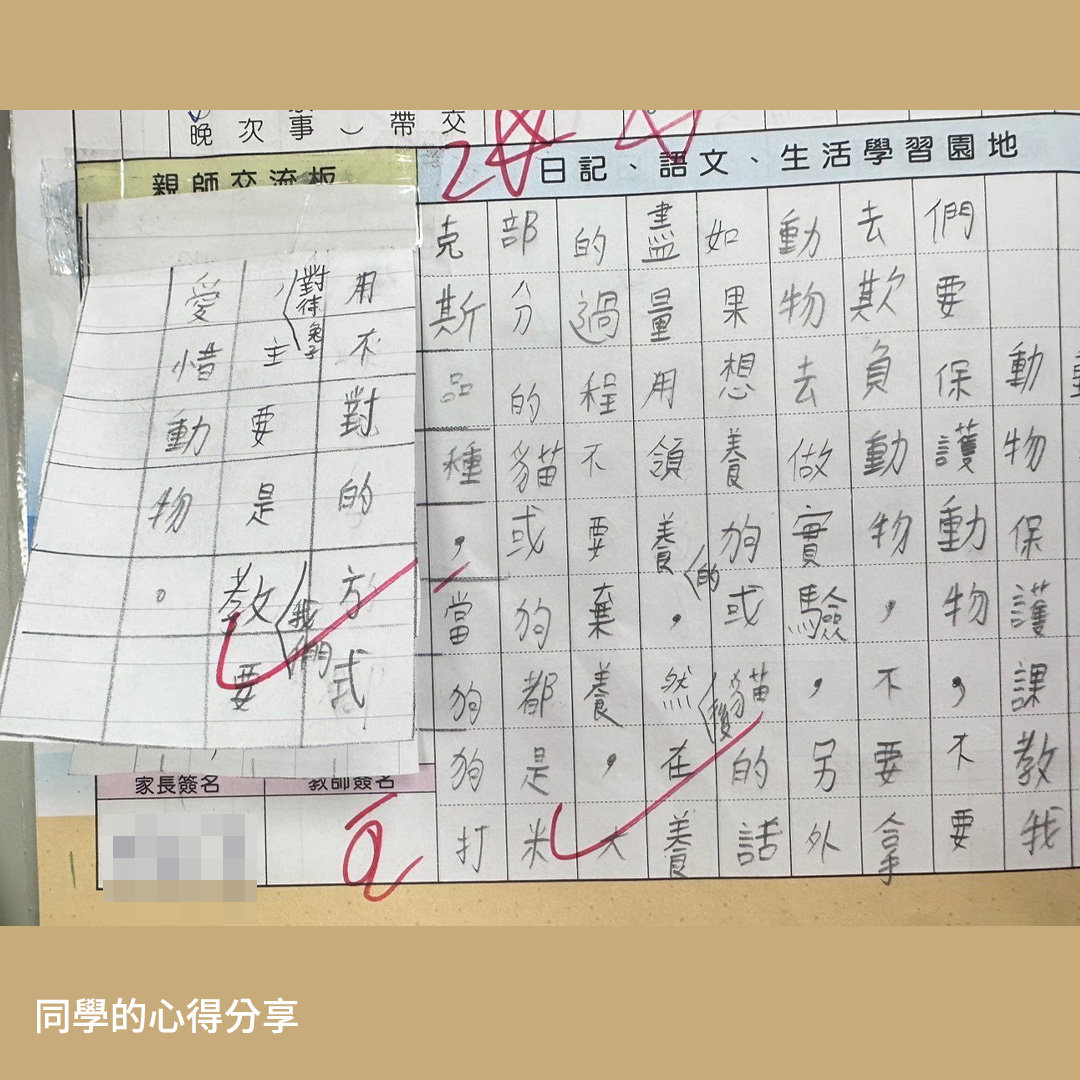 交
帶
）
事
次
晚
日記、語文、生活學習園地
親師交流板
動物保護課教我
們要保護動物，不要
去欺負動物，不要拿
動物去做實驗，另外
如果想養狗或貓的話
盡量用領養的，然後在養
的過程不要棄養，大
部分的貓或狗都是米
克斯品種，當狗狗打
用不對的方式
對待兔子，主要是教我們要
愛惜動物。
家長簽名
教師簽名
同學的心得分享